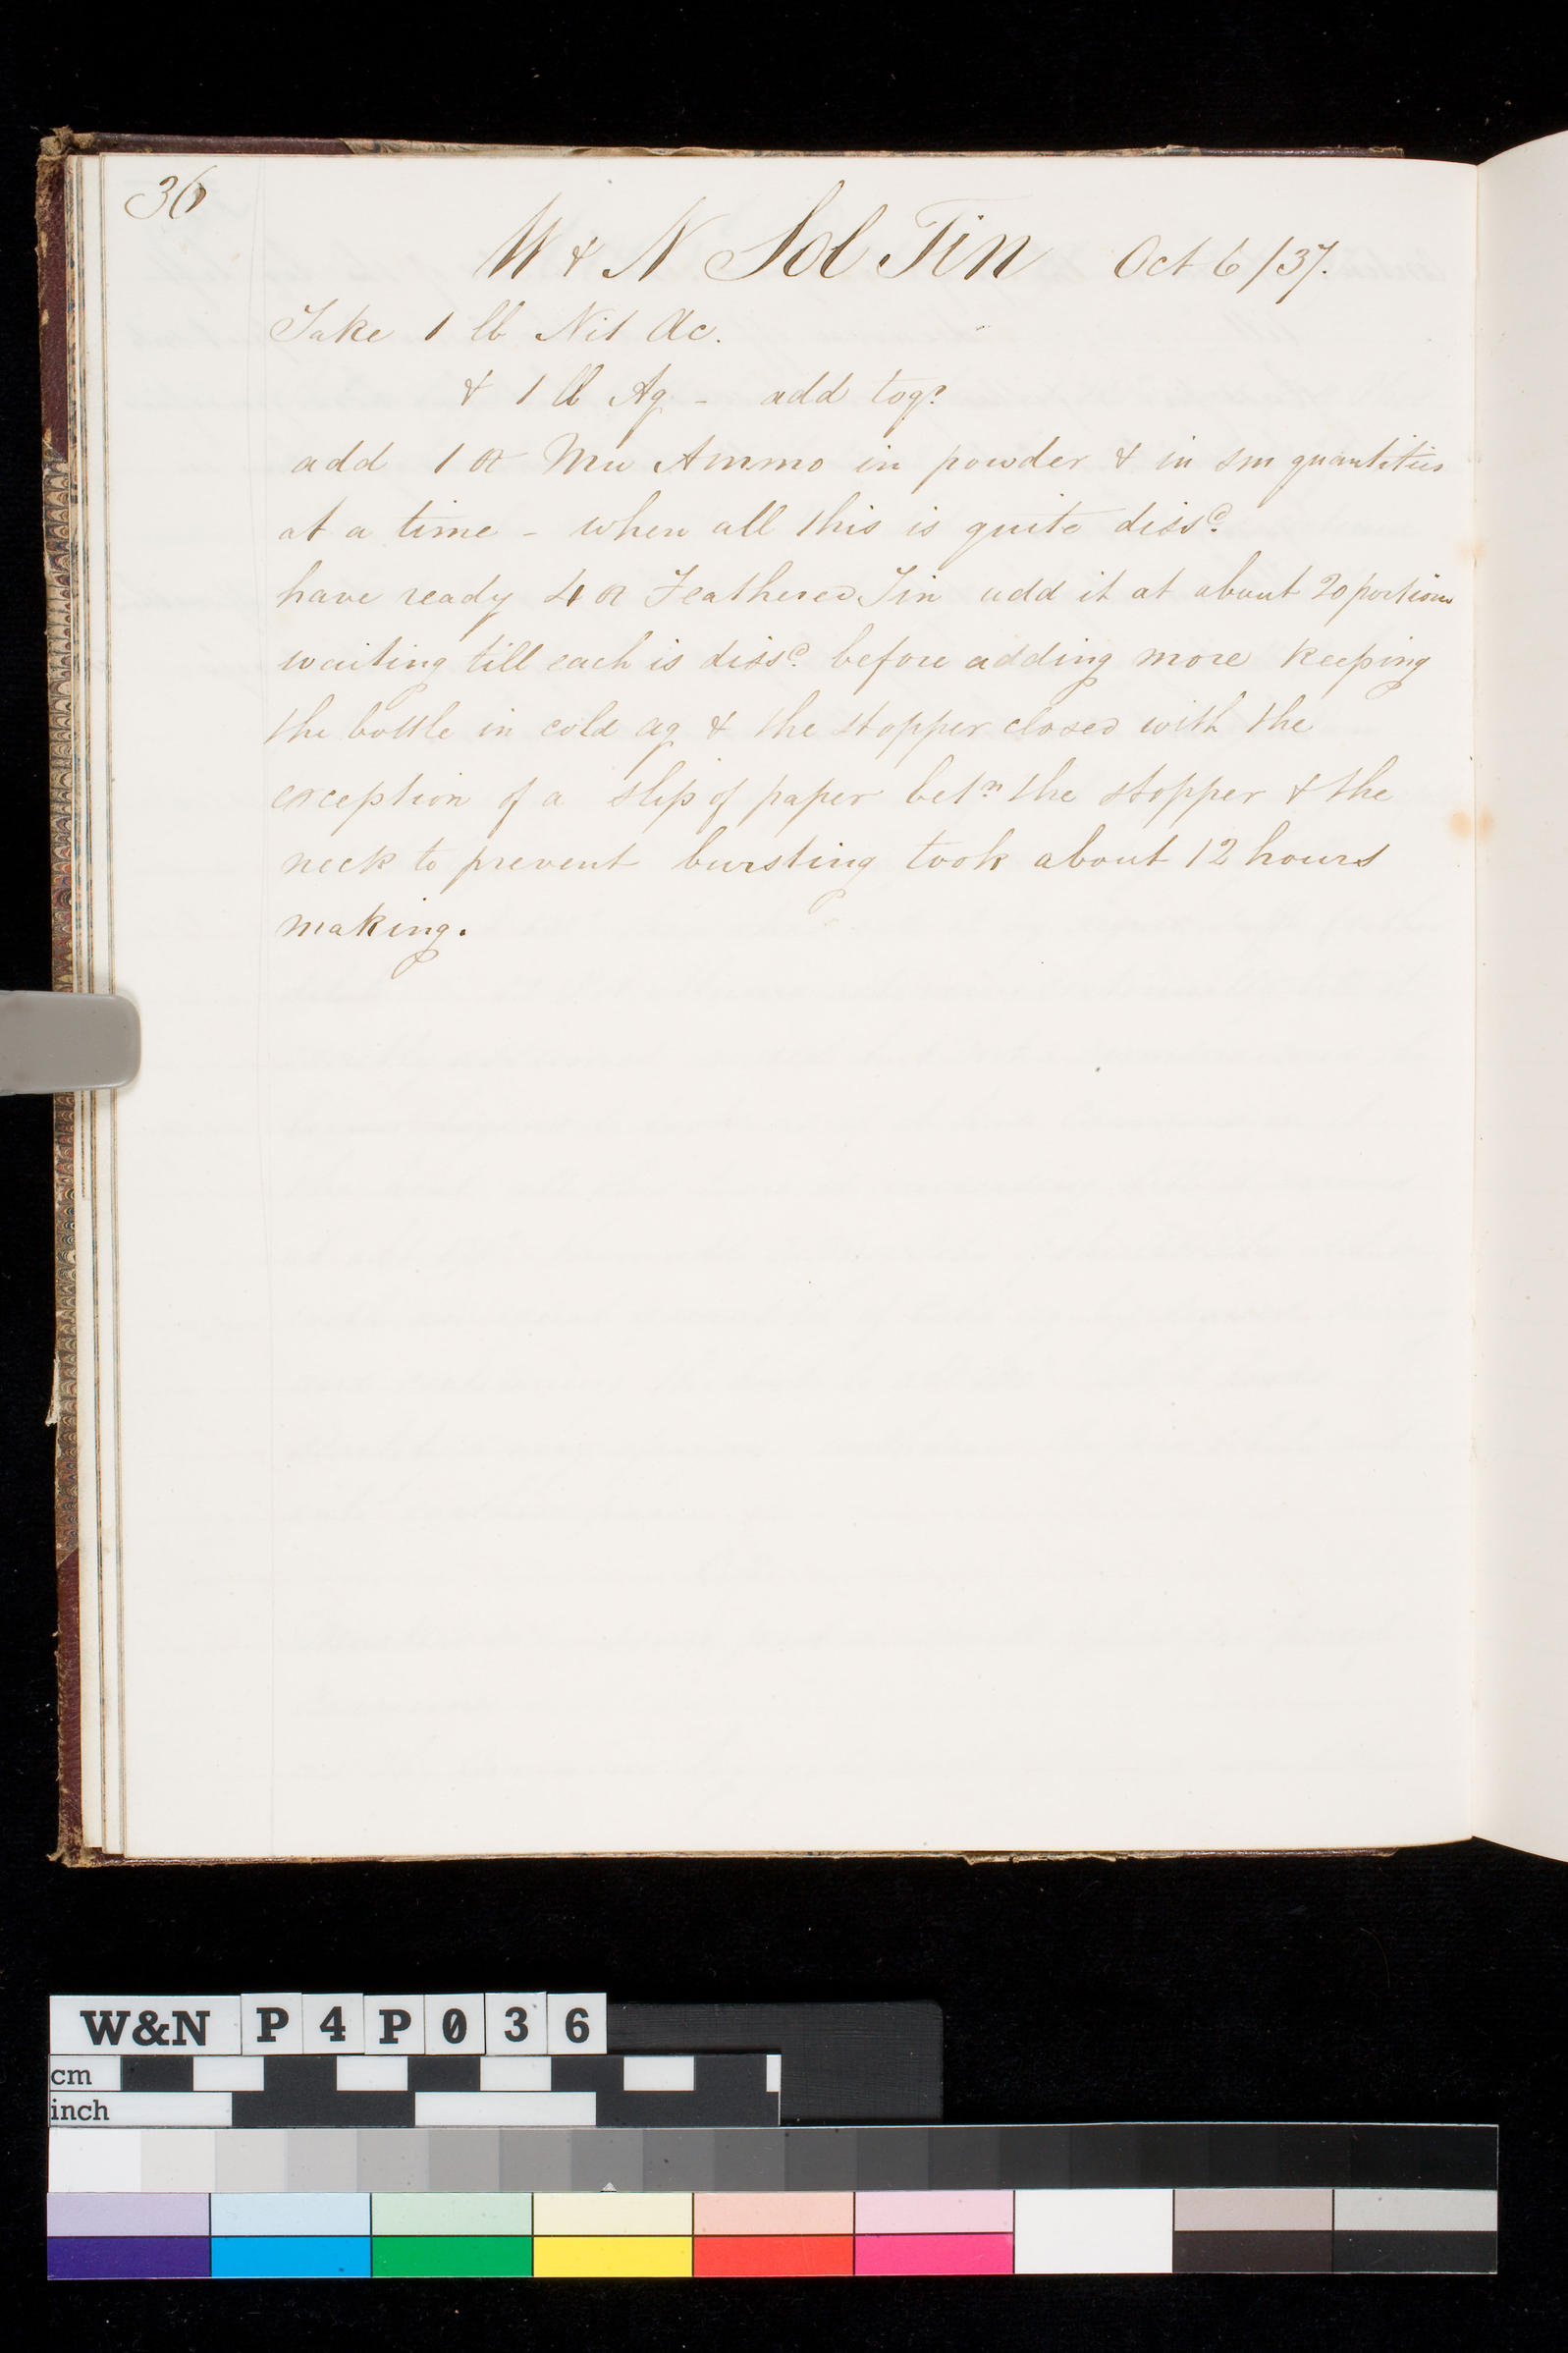 36
W & N Sol Tin Oct 6/37.
Take 1 lb Nit Ac.
& 1 lb Aq - add togr
add 1 oz Mu Ammo in powder & in sm quantities
at a time - when all this is quite dissd.
have ready 4 oz Feathered Tin add it at about 20 portions
waiting till each is dissd. before adding more keeping
the bottle in cold aq & the stopper closed with the
exception of a slip of paper betn the stopper & the
neck to prevent bursting took about 12 hours
making.
W&N P4P036
cm
inch